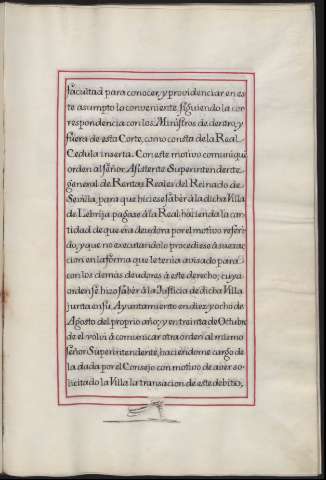 facultad para conocer, y providenciar en es
te asumpto lo conveniente siguiendo la cor
respondencia con los Ministros de dentro, y
fuera de esta Corte, como consta de la Real
Cedula inserta. Con este motivo comuniqué
orden al señor Asistente Superintendente
general de Rentas Reales del Reinado de
Sevilla, para que hiciese sabèr à la dicha Villa
de Lebrija pagase à la Real hacienda la can
tidad de que era deudora por el motivo referi
do, y que no executandolo procediese à su exac
cion en la forma que le tenia avisado para
con los demàs deudores à este derecho; cuya
orden se hizo sabèr à la Justicia de dicha Villa
junta en su Ayuntamiento en diez y ocho de
Agosto del proprio año; y en treinta de Octubre
de el volvi à comunicar otra orden al mismo
señor Superintendente, haciendome cargo de
la dada por el Consejo con motivo de aver so
licitado la Villa la transacion de este debito,